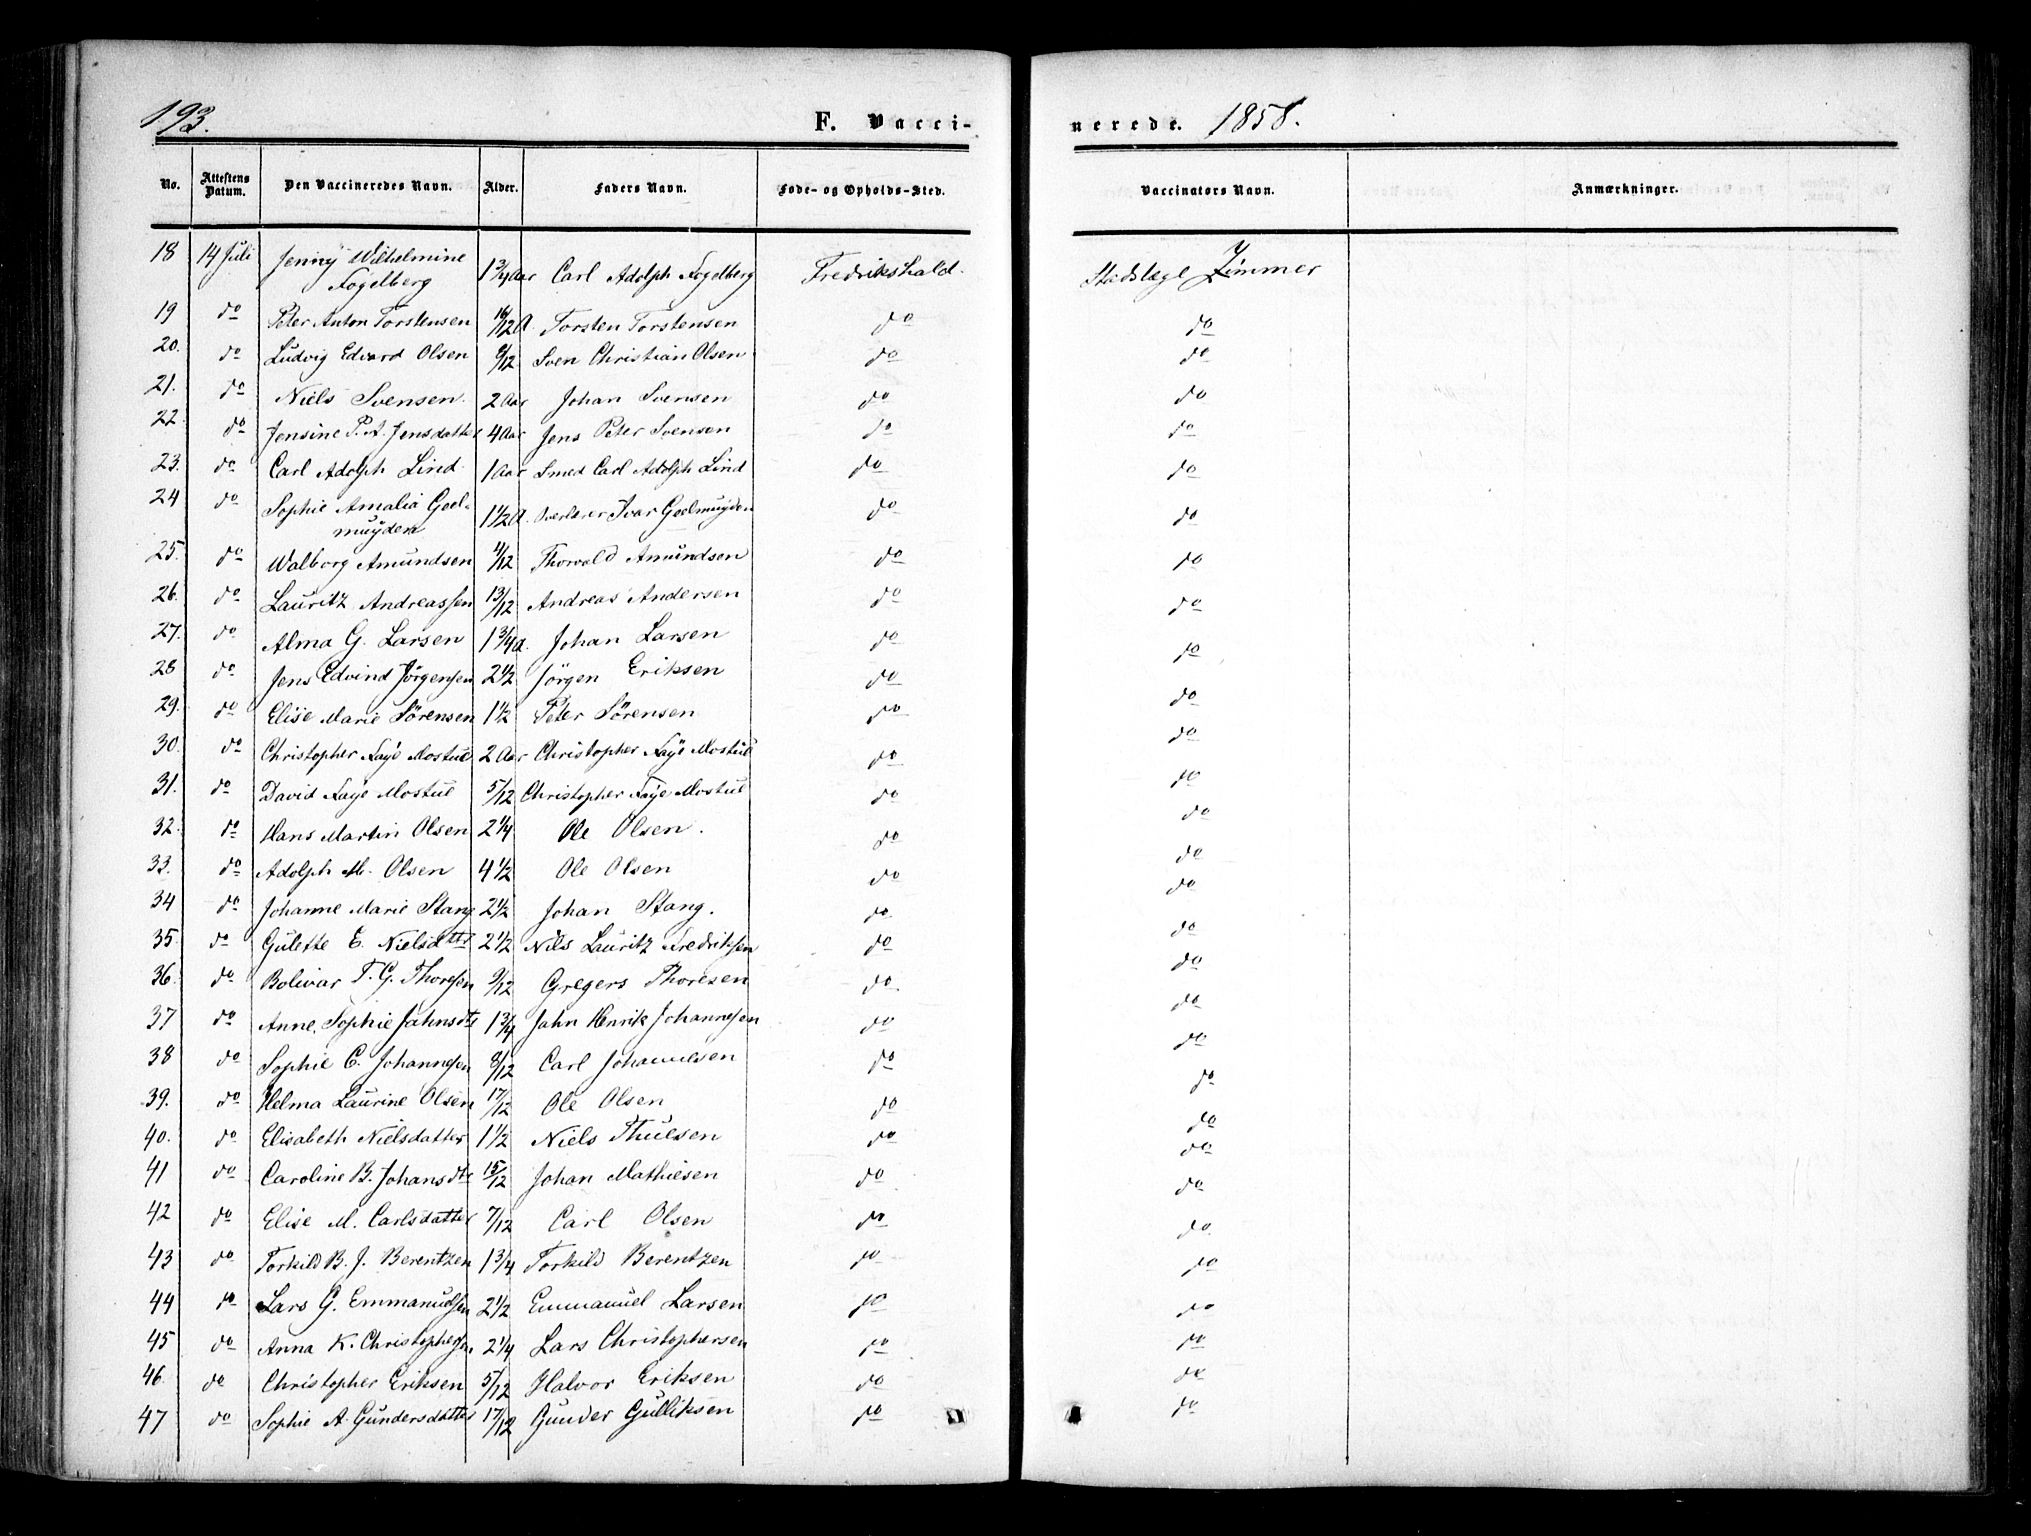 193.
F. Vacci-
nerede. 1858.
No. Attestens Datum. Den Vaccineredes Navn. Alder. Faders Navn. Føde- og Opholds-Sted. Vaccinators Navn. Anmærkninger.
18 14 Juli Jenny Wilhelmine Fogelberg 1 3/4 Aar Carl Adolph Fogelberg Fredrikshald. Stadslæge Zimmer
19 do Peter Anton Torstensen 10/12 A. Torsten Torstensen do do
20. do Ludvig Edvard Olsen 9/12 Sven Christian Olsen do do
21. do Niels Svensen. 2 Aar Johan Svensen do do
22. do Jensine P. A. Jensdatter 4 Aar Jens Peter Svensen do do
23. do Carl Adolph Lind. 1 Aar Smed Carl Adolph Lind do do
24 do Sophie Amalia Geel-muyden 1 1/2 A. Overlærer Ivar Geelmuyden do do
25. do Walborg Amundsen 4/12 Thorvald Amundsen do do
26. do Lauritz Andreassen 13/12 Andreas Andersen do do
27. do Alma G. Larsen 1 3/4 A. Johan Larsen do do
28 do Jens Edvind Jörgensen 2 1/2 Jörgen Eriksen do do
29. do Elise Marie Sörensen 1 1/2 Peter Sörensen do do
30. do Christopher Faye Mostue 2 Aar Christopher Faye Mostue do do
31. do David Faye Mostue 5/12 Christopher Faye Mostue do do
32. do Hans Martin Olsen 2 1/4 Ole Olsen. do do
33. do Adolph M. Olsen 4 1/2 Ole Olsen do do
34 do Johanne Marie Stang 2 1/2 Johan Stang. do do
35. do Gulette E. Nielsdttr 2 1/2 Nils Lauritz Fredriksen do do
36. do Bolivar T. G. Thoresen 9/12 Gregers Thoresen do. do
37 do Anne Sophie Jahnsdtr 1 3/4 Jahn Henrik Johannesen do do
38 do Sophie C. Johannesen 8/12 Carl Johannesen do do
39. do Helma Laurine Olsen 17/12 Ole Olsen do do
40. do Elisabeth Nielsdatter 1 1/2 Niels Thuesen do do
41 do Caroline B. Johansdtr 15/12 Johan Mathiesen do do
42 do Elise M. Carlsdatter 7/12 Carl Olsen do do
43 do Torkild B. J. Berentzen 1 3/4 Torkild Berentzen do do
44 do Lars G. Emmanuelsen 2 1/2 Emmanuel Larsen do do
45 do Anna K. Christophersen 2 1/4 Lars Christophersen do do
46. do Christopher Eriksen 5/12 Halvor Eriksen do do
47 do Sophie A. Gundersdatter 17/12 Gunder Gulliksen do do